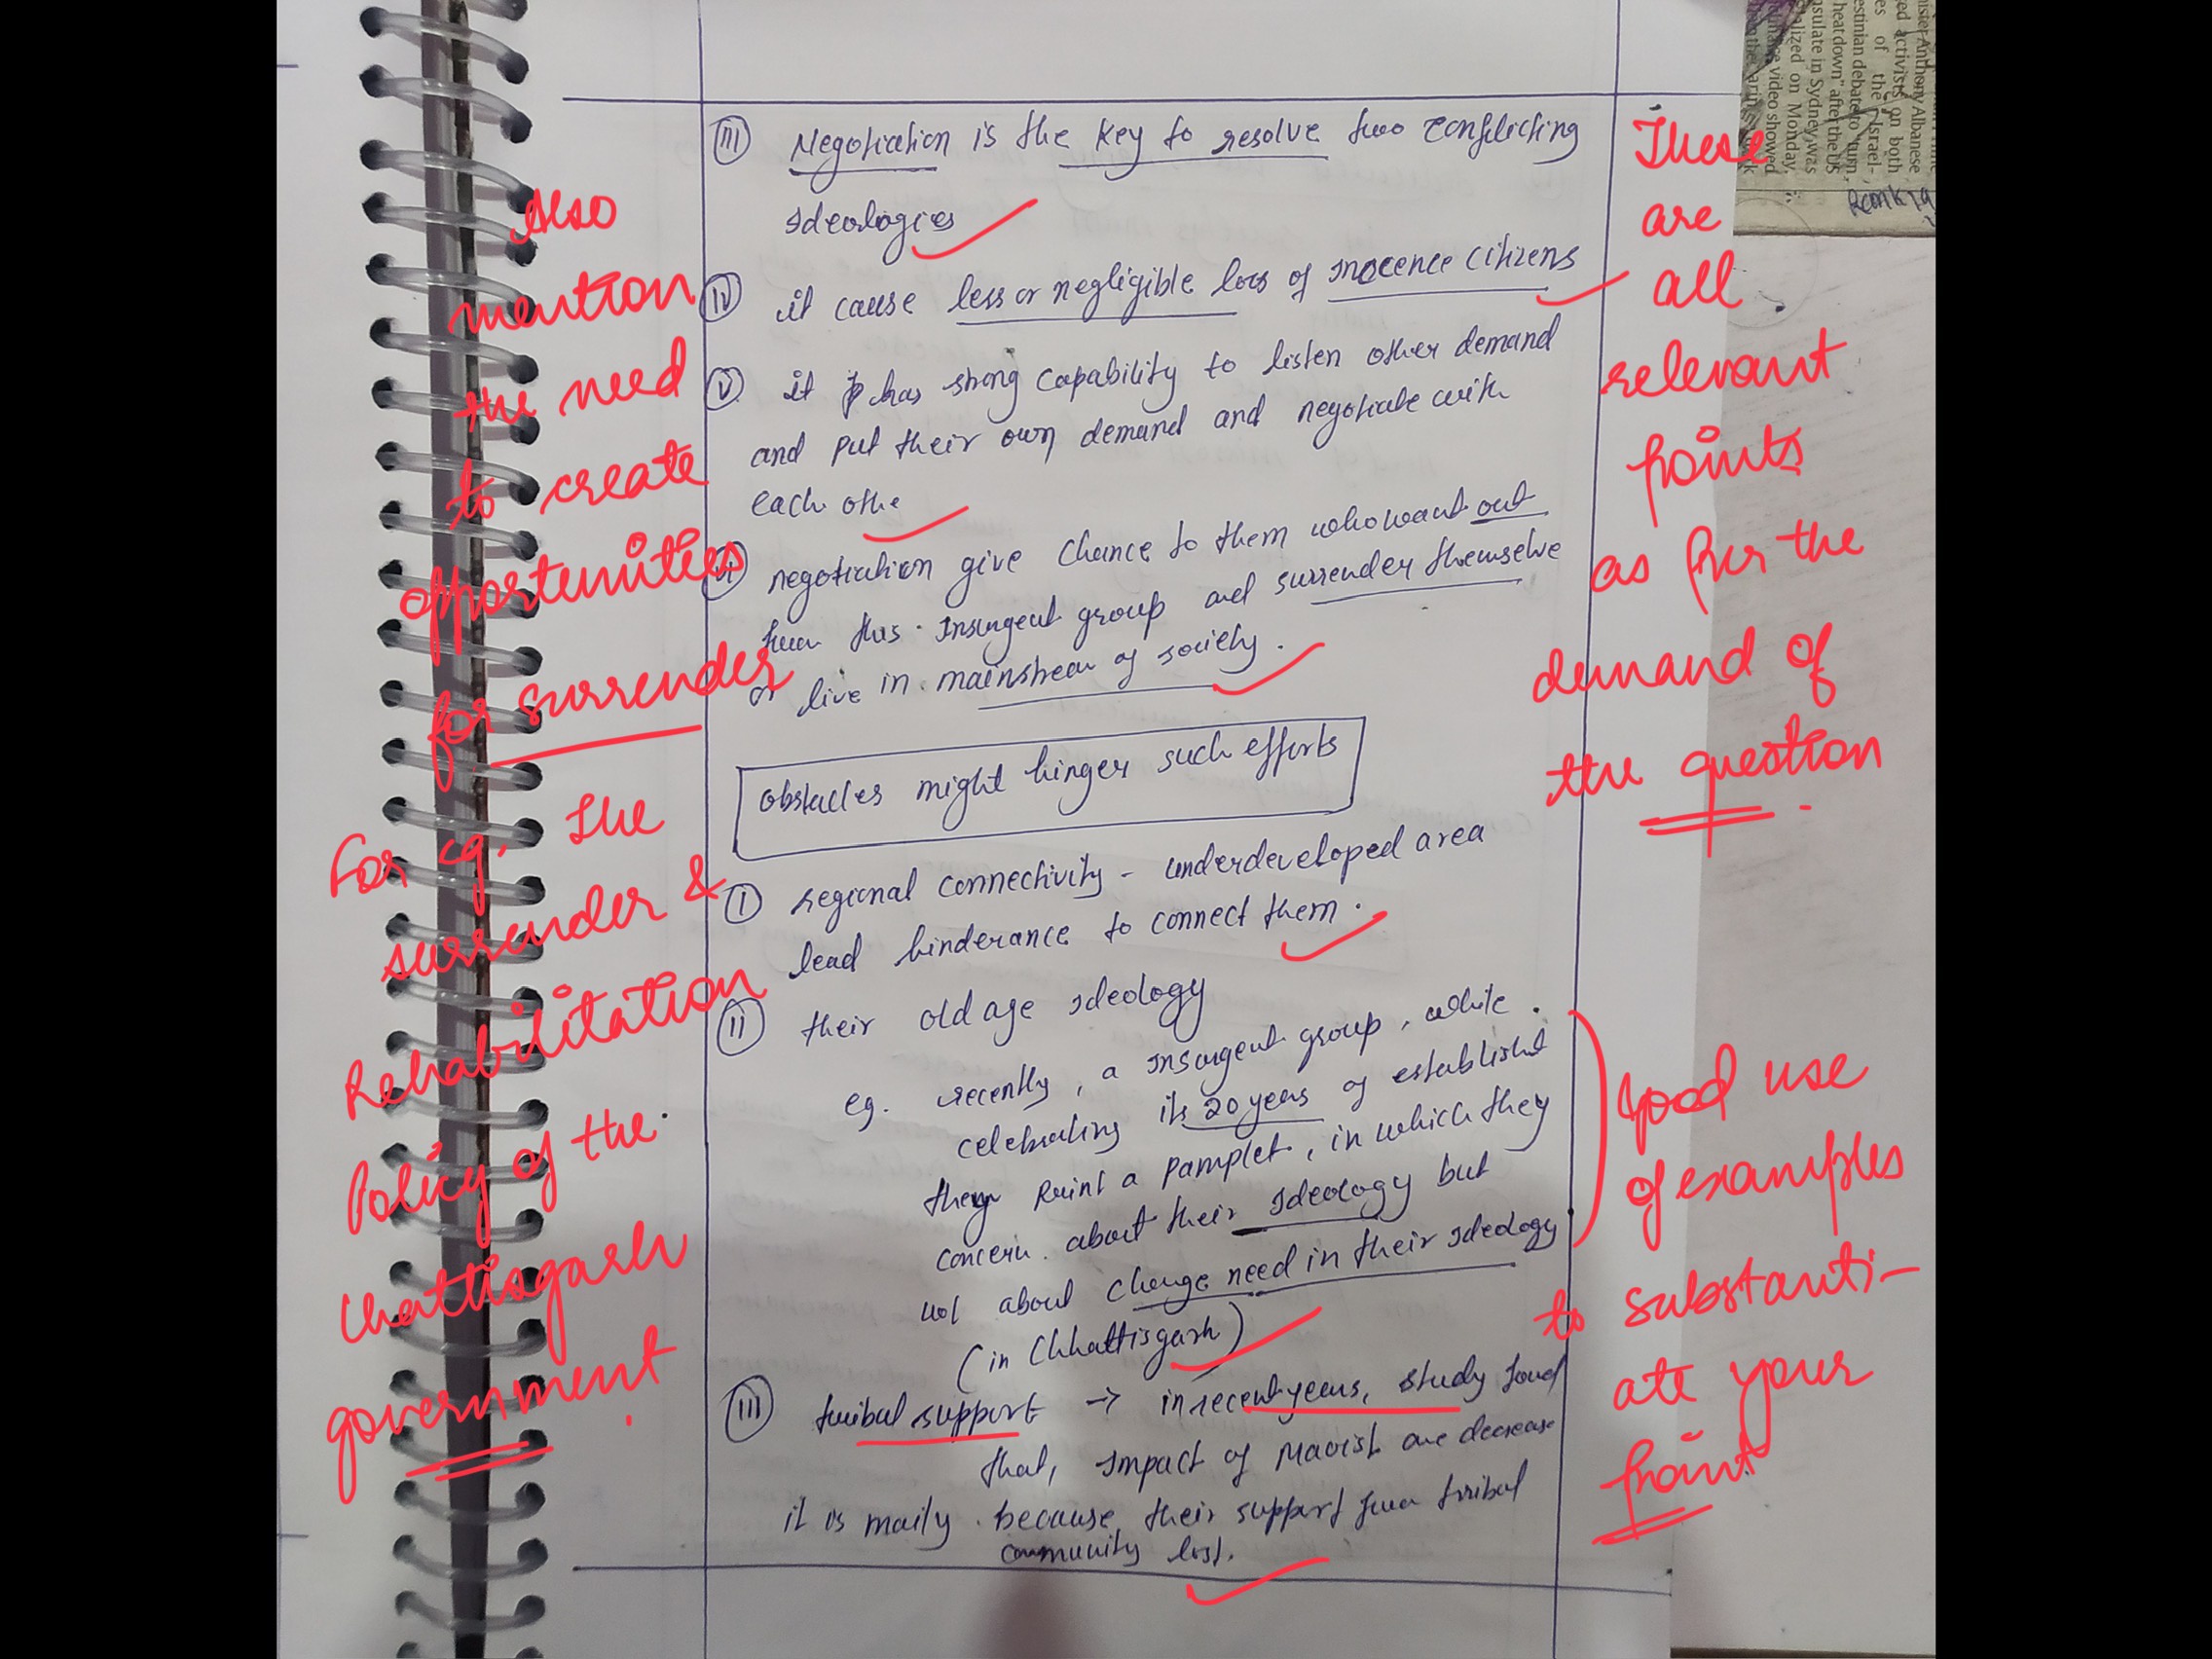 (III) Negotiation is the key to resolve two conflicting
Ideologies
(IV) it cause less or negligible loss of Inocence citizens
(V) it has strong capability to listen other demand
and put their own demand and negotiate with
each othe
negotiation give chance to them who want out
from this Insurgent group and surrender themselve
or live in mainstream of society.
obstacles might hinger such efforts
(I) regional connectivity - underdeveloped area
lead hinderance to connect them.
(II) their old age Ideology
eg. recently, a Insurgent group, while
celebrating its 20 years of established
they Print a pamplet, in which they
concern about their Ideology but
not about change need in their Ideology
(in Chhattisgarh)
(III) tribal support → in recent years, study found
that, Impact of Maoist are decrease
it is maily because their support from tribal
community lost.
Also
mention
the need
to create
opportunities
for surrender
For eg, the
surrender &
Rehabilitation
Policy of the
Chattisgarh
government.
These
are
all
relevant
points
as per the
demand of
the question.
Good use
of examples
to substanti-
ate your
point
nister Anthony Albanese
ed activists on both
es of the Israel-
estinian debate to "turn
heat down" after the US
nsulate in Sydney was
alized on Monday.
video showed